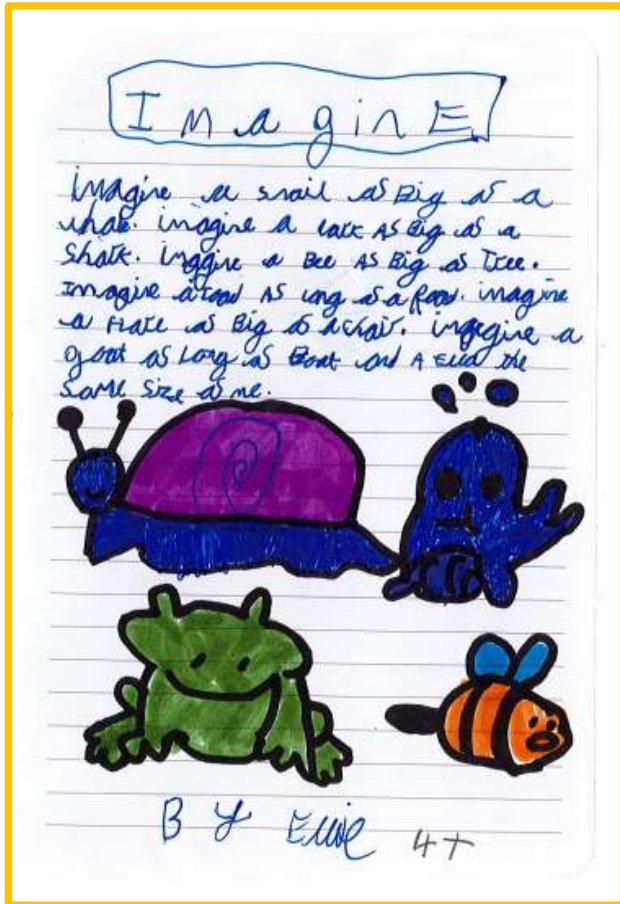 ImaginE
Imagine a snail as Big as a
whale. imagine a lark As Big as a
Shark. Imagine a Bee As Big as Tree.
Imagine a toad As long as a Road. imagine
a Hare as Big as a chair. imagine a
goat as Long as Boat and A the
Same Size as me.
By Ellie 4T